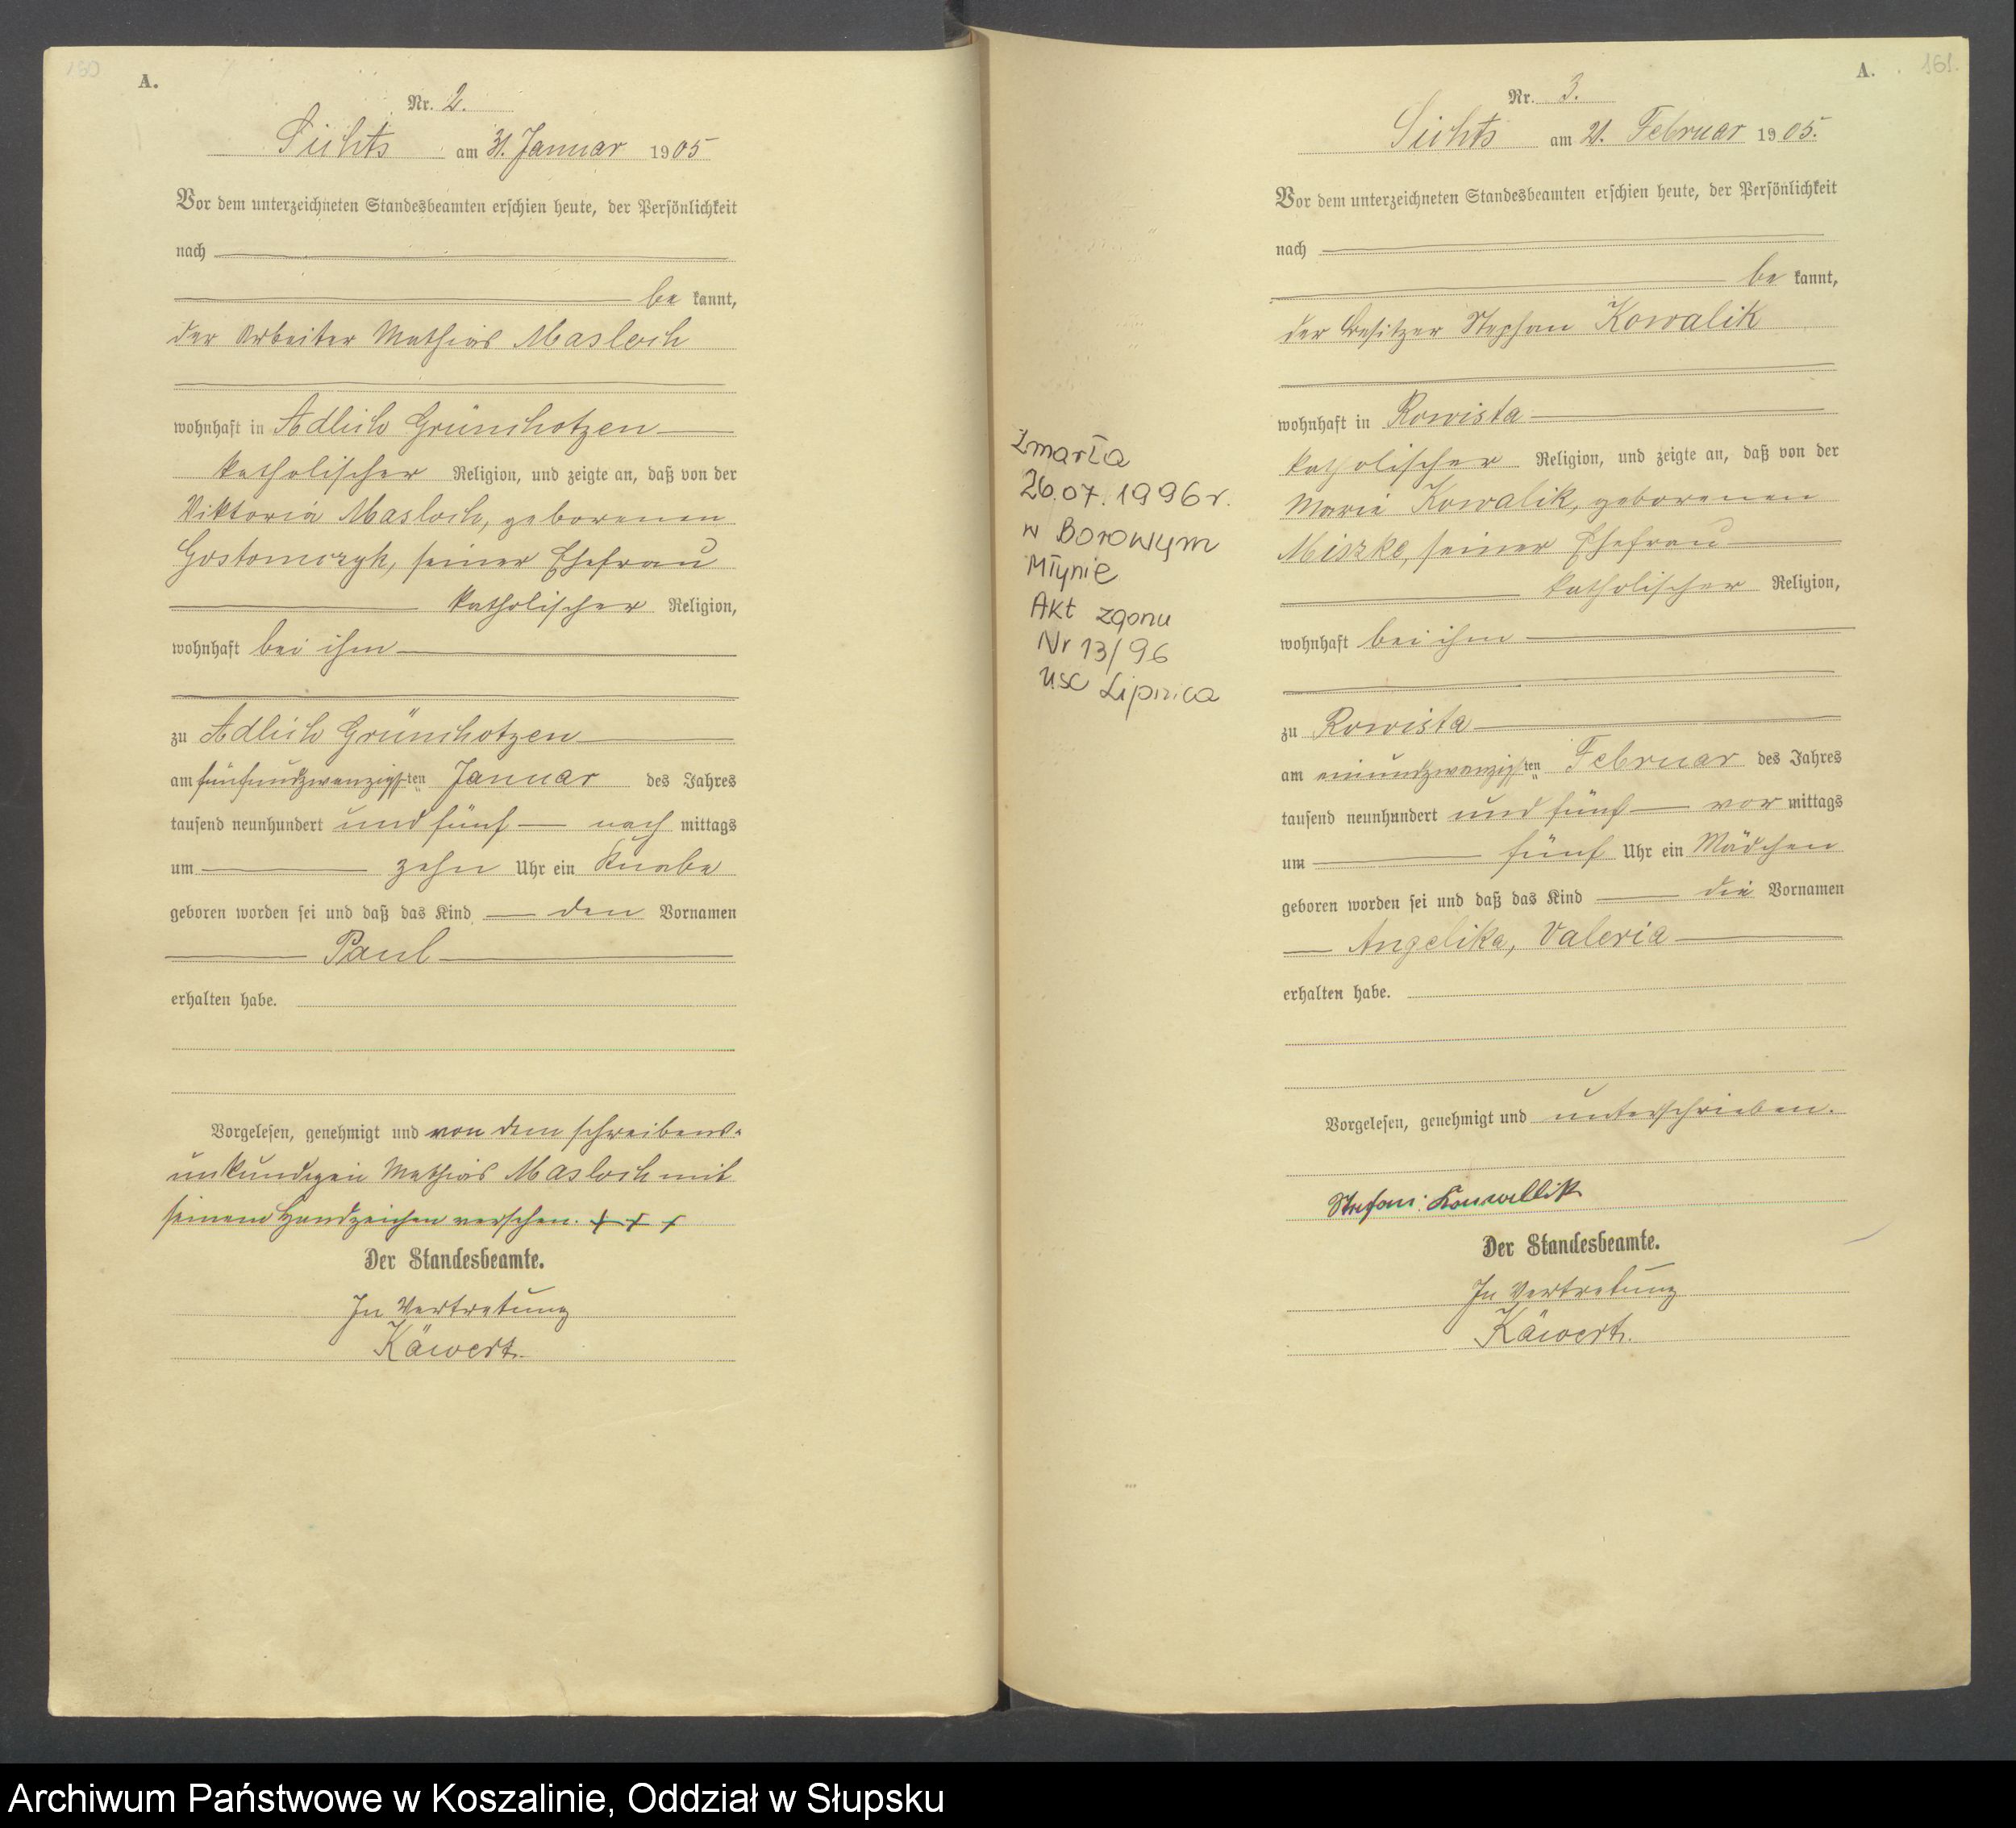 160
A.
Nr. 2.
Lichts am 31. Januar 1905
Vor dem unterzeichneten Standesbeamten erschien heute, der Persönlichkeit
nach
be kannt,
der Arbeiter Mathias Masloch
wohnhaft in Adlich Grünchotzen
katholischer Religion, und zeigte an, daß von der
Viktoria Masloch, geborenen
Gostomczyk, seiner Ehefrau
katholischer Religion,
wohnhaft bei ihm
zu Adlich Grünchotzen
am fünfundzwanzigsten Januar des Jahres
tausend neunhundert und fünf nach mittags
um zehn Uhr ein Knabe
geboren worden sei und daß das Kind den Vornamen
Paul
erhalten habe.
Vorgelesen, genehmigt und von dem schreibens-
unkundigen Mathias Masloch mit
seinem Handzeichen versehen. + + +
Der Standesbeamte.
In Vertretung
Käwert.
Zmarła
26.07.1996 r.
w Borowym
Młynie
Akt zgonu
Nr 13/96
USC Lipnica
A. 161.
Nr. 3.
Lichts am 21. Februar 1905.
Vor dem unterzeichneten Standesbeamten erschien heute, der Persönlichkeit
nach
be kannt,
der Besitzer Stephan Kowalik
wohnhaft in Rowista
katholischer Religion, und zeigte an, daß von der
Marie Kowalik, geborenen
Miszke, seiner Ehefrau
katholischer Religion,
wohnhaft bei ihm
zu Rowista
am einundzwanzigsten Februar des Jahres
tausend neunhundert und fünf vor mittags
um fünf Uhr ein Mädchen
geboren worden sei und daß das Kind die Vornamen
Angelika, Valeria
erhalten habe.
Vorgelesen, genehmigt und unterschrieben.
Der Standesbeamte.
In Vertretung
Käwert.
Archiwum Państwowe w Koszalinie, Oddział w Słupsku